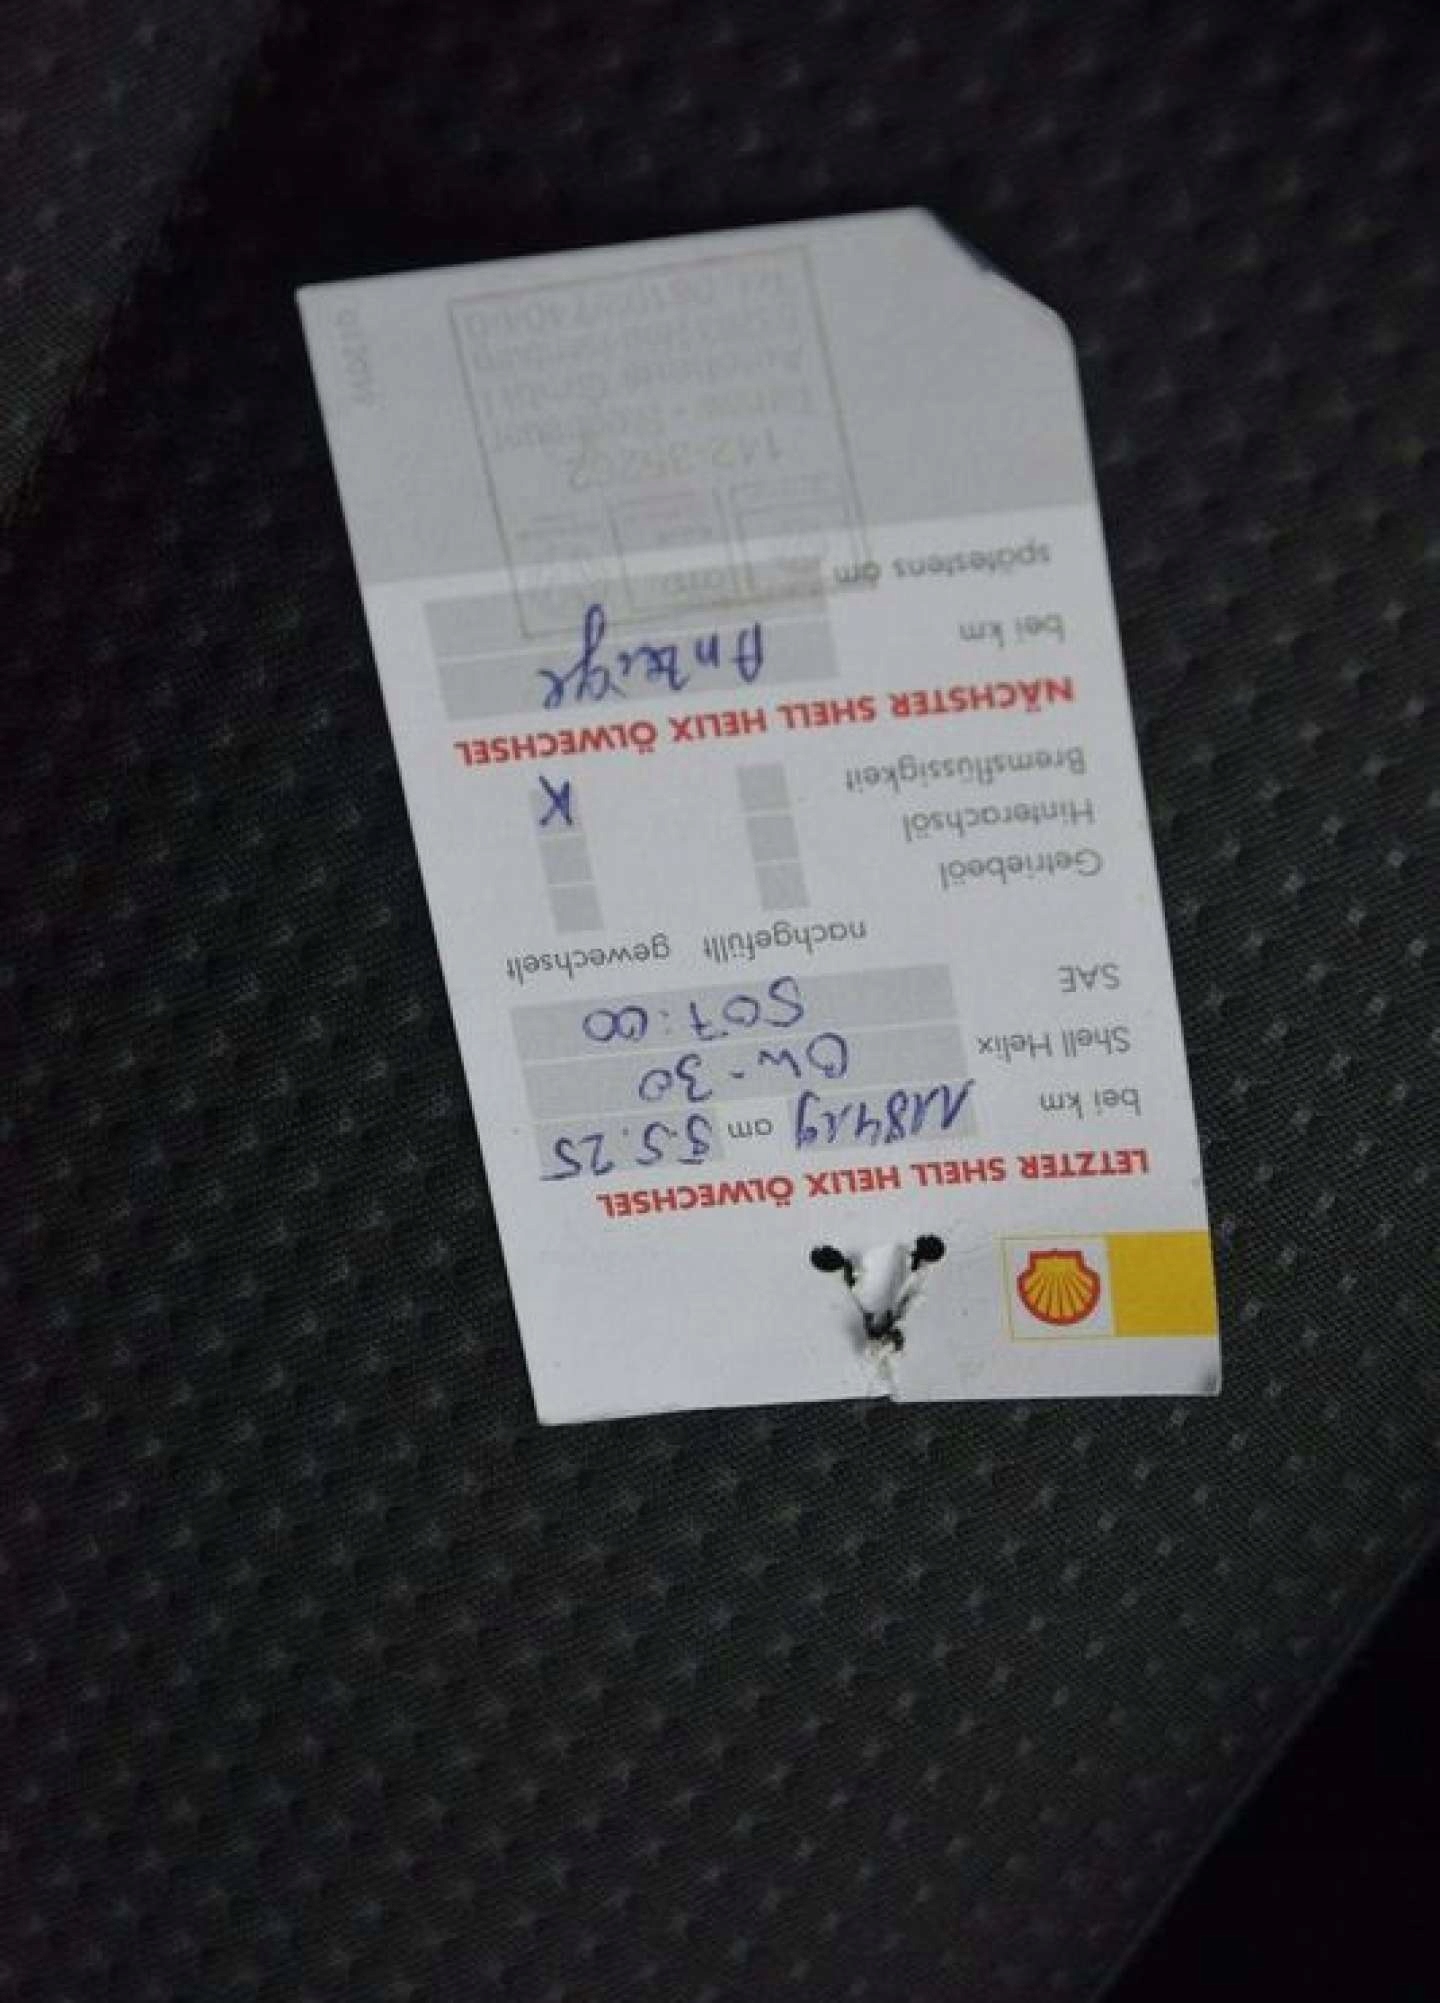 LETZTER SHELL HELIX ÖLWECHSEL
bei km 118419 am 5.5.25
Shell Helix 0W-30
SAE 507:00
nachgefüllt gewechselt
Getriebeöl
Hinterachsöl
Bremsflüssigkeit K
NÄCHSTER SHELL HELIX ÖLWECHSEL
bei km Anzeige
spätestens am
142-35202